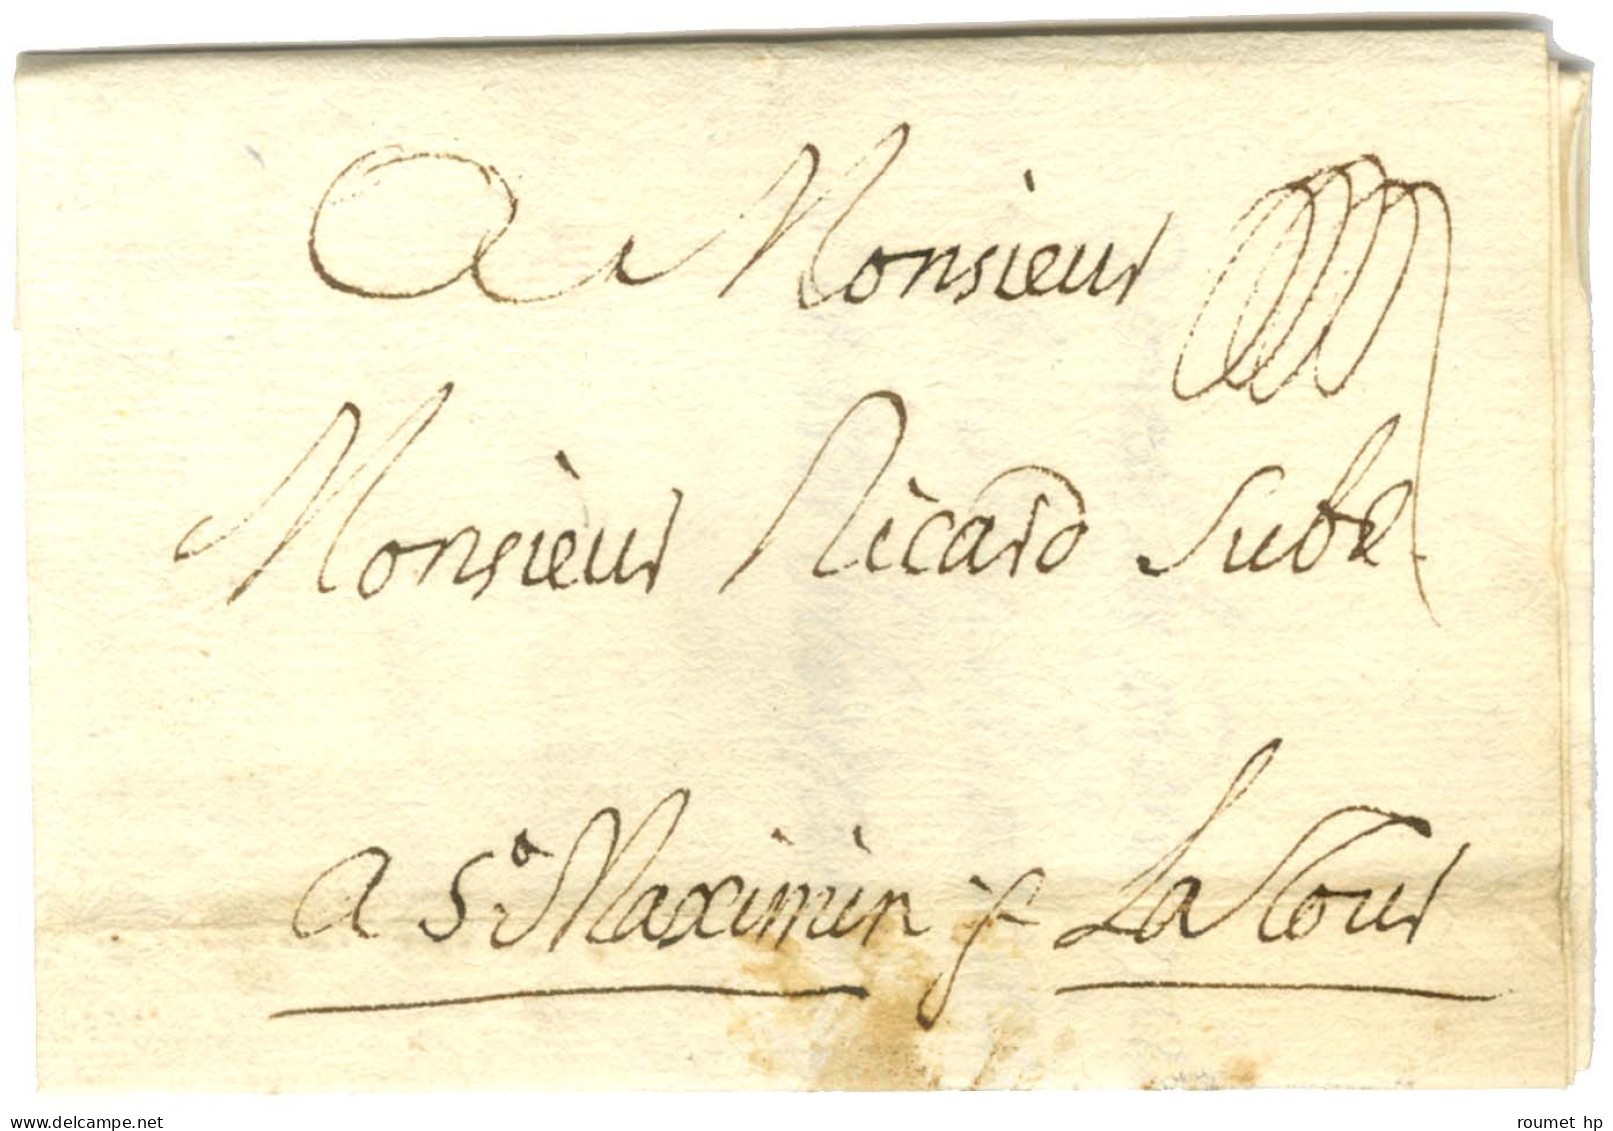 A Monsieur
Monsieur Ricard Subé
a St Maximin p La Tour
delcampe.net
roumet hp